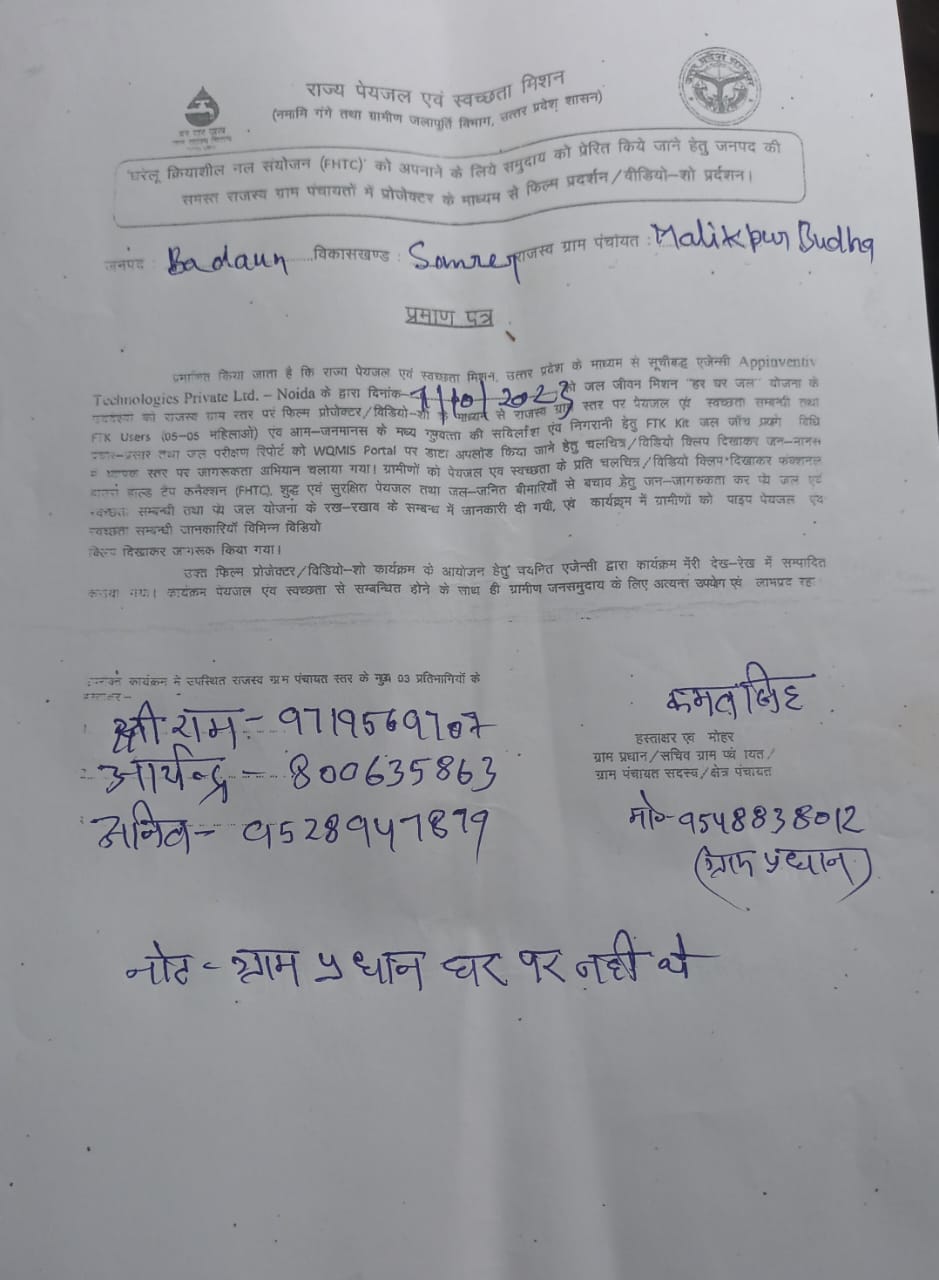 राज्य पेयजल एवं स्वच्छता मिशन
(नमामि गंगे तथा ग्रामीण जलापूर्ति विभाग, उत्तर प्रदेश शासन)
'घरेलू क्रियाशील नल संयोजन (FHTC)' को अपनाने के लिये समुदाय को प्रेरित किये जाने हेतु जनपद की
समस्त राजस्व ग्राम पंचायतों में प्रोजेक्टर के माध्यम से फिल्म प्रदर्शन/वीडियो-शो प्रर्दशन।
जनपद : Badaun विकासखण्ड : Samrer राजस्व ग्राम पंचायत : Malikpur Budha
प्रमाण पत्र
प्रमाणित किया जाता है कि राज्य पेयजल एवं स्वच्छता मिशन, उत्तर प्रदेश के माध्यम से सूचीबद्ध एजेन्सी Appinventiv
Technologies Private Ltd. – Noida के द्वारा दिनांक- /10/2023 को जल जीवन मिशन "हर घर जल" योजना के
को राजस्व ग्राम स्तर पर फिल्म प्रोजेक्टर/विडियो-शो के माध्यम से राजस्व ग्राम स्तर पर पेयजल एवं स्वच्छता सम्बन्धी तथा
FTK Users (05-05 महिलाओं) एवं आम-जनमानस के मध्य गुणवत्ता की सर्विलांश एंव निगरानी हेतु FTK Kit जल जाँच प्रयोग विधि
प्रचार-प्रसार तथा जल परीक्षण रिपोर्ट को WQMIS Portal पर डाटा अपलोड किया जाने हेतु चलचित्र/विडियो क्लिप दिखाकर जन-मानस
में व्यापक स्तर पर जागरूकता अभियान चलाया गया। ग्रामीणों को पेयजल एव स्वच्छता के प्रति चलचित्र/विडियो क्लिप दिखाकर फंक्शनल
हाल्ड टैप कनैक्शन (FHTC), शुद्ध एवं सुरक्षित पेयजल तथा जल-जनित बीमारियों से बचाव हेतु जन-जागरुकता कर पेय जल एवं
स्वच्छता सम्बन्धी तथा पेय जल योजना के रख-रखाव के सम्बन्ध में जानकारी दी गयी, एवं कार्यक्रम में ग्रामीणों को पाइप पेयजल एवं
स्वच्छता सम्बन्धी जानकारियाँ विभिन्न विडियो
क्लिप दिखाकर जागरूक किया गया।
उक्त फिल्म प्रोजेक्टर/विडियो-शो कार्यक्रम के आयोजन हेतु चयनित एजेन्सी द्वारा कार्यक्रम मेरी देख-रेख में सम्पादित
कराया गया। कार्यक्रम पेयजल एंव स्वच्छता से सम्बन्धित होने के साथ ही ग्रामीण जनसमुदाय के लिए अत्यन्त उपयोग एवं लाभप्रद रहा
कार्यक्रम में उपस्थित राजस्व ग्राम पंचायत स्तर के मुख्य 03 प्रतिभागियों के
श्री राम - 9719569707
आर्येन्द्र - 800635863
अनिल - 9528947879
कमल सिंह
हस्ताक्षर एवं मोहर
ग्राम प्रधान/सचिव ग्राम पंचायत/
ग्राम पंचायत सदस्य/क्षेत्र पंचायत
मो०-9548838012
(ग्राम प्रधान)
नोट - ग्राम प्रधान घर पर नही थे